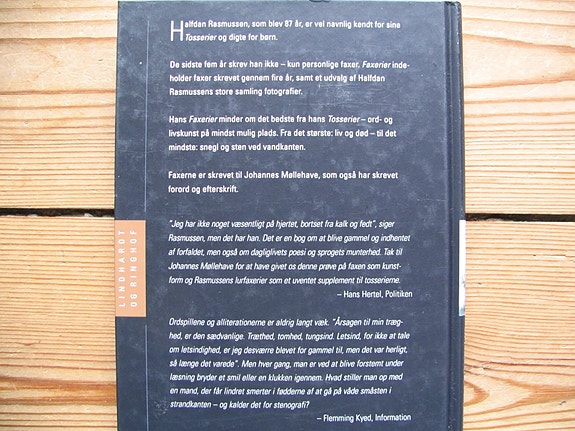 Halfdan Rasmussen, som blev 87 år, er vel navnlig kendt for sine
Tosserier og digte for børn.
De sidste fem år skrev han ikke – kun personlige faxer. Faxerier inde-
holder faxer skrevet gennem fire år, samt et udvalg af Halfdan
Rasmussens store samling fotografier.
Hans Faxerier minder om det bedste fra hans Tosserier – ord- og
livskunst på mindst mulig plads. Fra det største: liv og død – til det
mindste: snegl og sten ved vandkanten.
Faxerne er skrevet til Johannes Møllehave, som også har skrevet
forord og efterskrift.
"Jeg har ikke noget væsentligt på hjertet, bortset fra kalk og fedt", siger
Rasmussen, men det har han. Det er en bog om at blive gammel og indhentet
af forfaldet, men også om dagliglivets poesi og sprogets munterhed. Tak til
Johannes Møllehave for at have givet os denne prøve på faxen som kunst-
form og Rasmussens lurfaxerier som et uventet supplement til tosserierne.
– Hans Hertel, Politiken
Ordspillene og alliterationerne er aldrig langt væk. "Årsagen til min træg-
hed, er den sædvanlige. Træthed, tomhed, tungsind. Letsind, for ikke at tale
om letsindighed, er jeg desværre blevet for gammel til, men det var herligt,
så længe det varede". Men hver gang, man er ved at blive forstemt under
læsning bryder et smil eller en klukken igennem. Hvad stiller man op med
en mand, der får lindret smerter i fødderne af at gå på våde småsten i
strandkanten – og kalder det for stenografi?
– Flemming Kyed, Information
LINDHARDT
OG RINGHOF